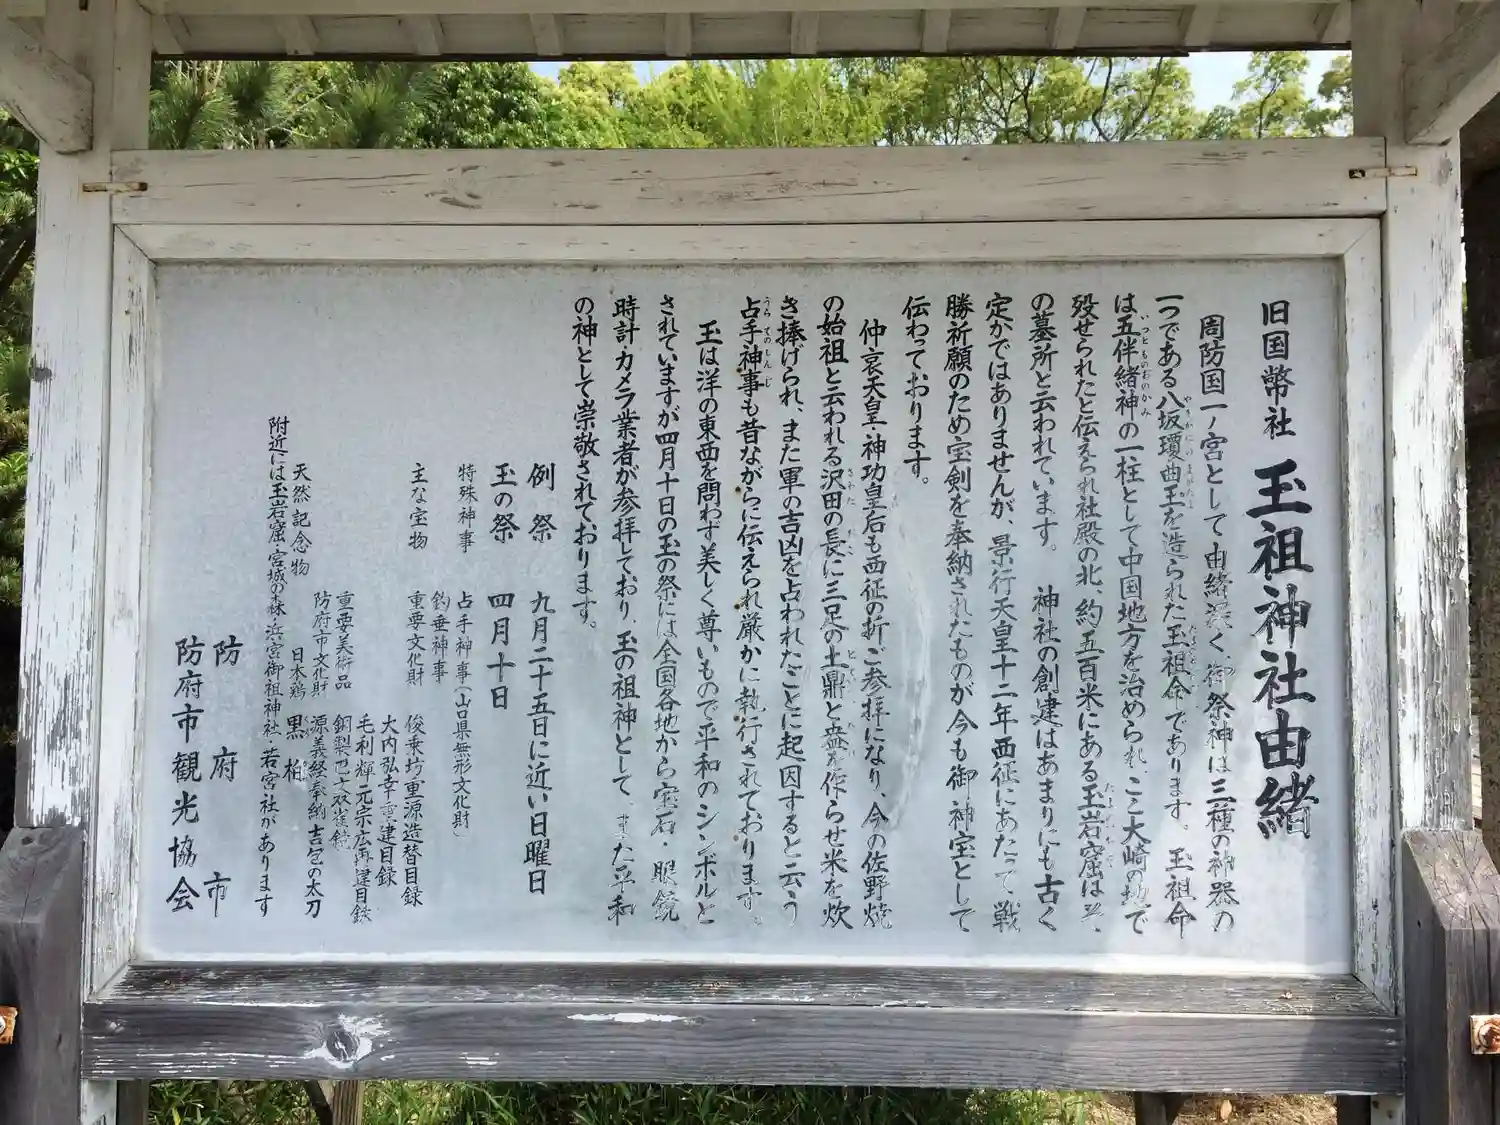 旧国幣社 玉祖神社由緒
周防国一ノ宮として由緒深く、御祭神は三種の神器の
一つである八坂瓊曲玉を造られた玉祖命であります。玉祖命
は五伴緒神の一柱として中国地方を治められ、ここ大崎の地で
歿せられたと伝えられ社殿の北、約五百米にある玉岩窟はそ
の墓所と云われています。 神社の創建はあまりにも古く
定かではありませんが、景行天皇十二年西征にあたって、戦
勝祈願のため宝剣を奉納されたものが今も御神宝として
伝わっております。
仲哀天皇・神功皇后も西征の折ご参拝になり、今の佐野焼
の始祖と云われる沢田の長に三足の土鼎と盎を作らせ米を炊
き捧げられ、また軍の吉凶を占われたことに起因すると云う
占手神事も昔ながらに伝えられ厳かに執行されております。
玉は洋の東西を問わず美しく尊いもので平和のシンボルと
されていますが四月十日の玉の祭には全国各地から宝石・眼鏡
時計・カメラ業者が参拝しており、玉の祖神として、また平和
の神として崇敬されております。
例祭 九月二十五日に近い日曜日
玉の祭 四月十日
特殊神事 占手神事(山口県無形文化財)
釣垂神事
主な宝物 重要文化財 俊乗坊重源造替目録
大内弘幸重建目録
毛利輝元宗広再建目録
重要美術品 銅製巴文双雀鏡
防府市文化財 源義経奉納 吉包の太刀
天然記念物 日本鶏 黒柏
附近には玉岩窟・宮城の森・浜宮御祖神社 若宮社があります
防府市
防府市観光協会